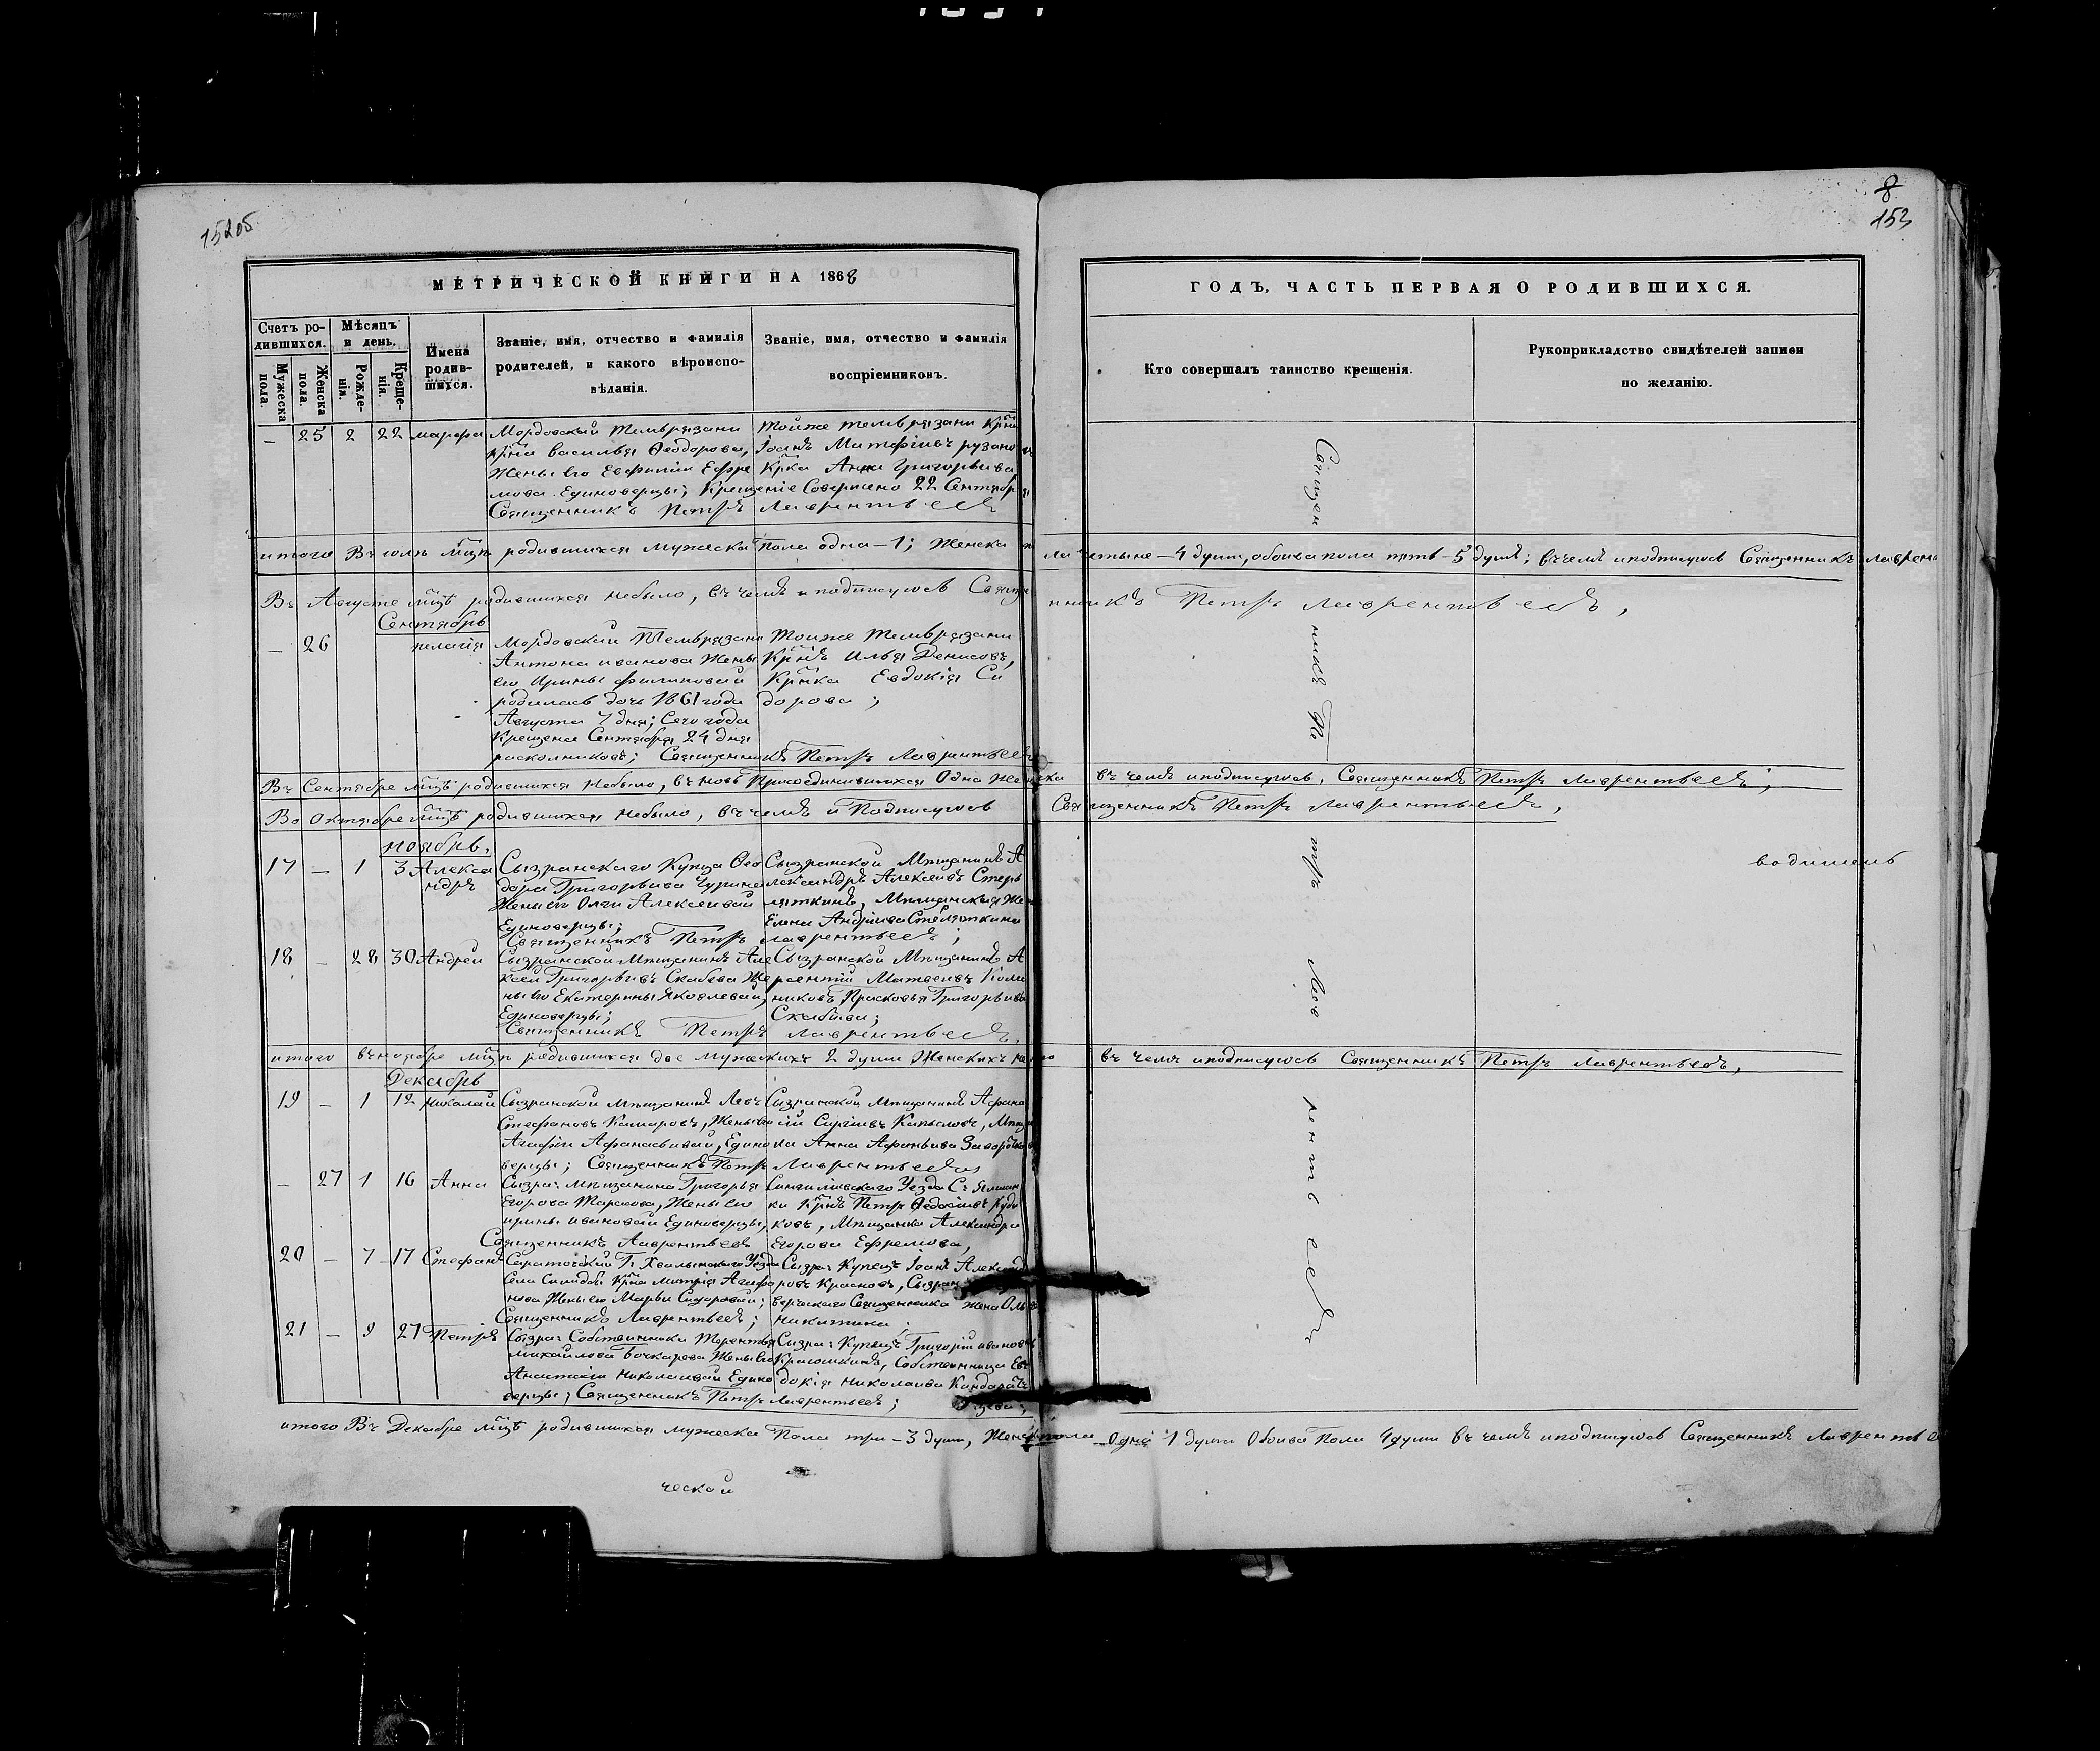 15205
8
153
МЕТРИЧЕСКОЙ КНИГИ НА 1868
ГОДЪ, ЧАСТЬ ПЕРВАЯ О РОДИВШИХСЯ.
Счетъ ро-
дившихся.
Мужеска
пола.
Женска
пола.
Мѣсяцъ
и день.
Рожде-
нія.
Креще-
нія.
Имена
родив-
шихся.
Званіе, имя, отчество и фамилія
родителей, и какого вѣроиспо-
вѣданія.
Званіе, имя, отчество и фамилія
воспріемниковъ.
Кто совершалъ таинство крещенія.
Рукоприкладство свидѣтелей записи
по желанію.
— 25 2 22 марфа
Мордовской Темврязани
крна василья Феодорова,
Жены его Евфиміи Ефре
мова. Единоверцы; Крещеніе Совершено 22 Сентября
Священникъ Петръ Лаврентьевъ
Тойже темврязани
Іоанъ Матфіивъ
Крка Анна Григорьива
итого Въ мцѣ родившихся мужеска Пола одна — 1; Женска пола четыне — 4 душъ, обоива пола пять — 5 душъ; въ чемъ и подписуюсь Священникъ
Въ Августе мцѣ родившихся небыло, въ чемъ и подписуюсь Священникъ Петръ Лаврентьевъ,
Сентябрь
— 26 пелагія
Мордовской Темврязани
Антона иванова Жены
его Ирины филиповой
родилась дочь 1861 года
Августа 7 дня; Сего года
Крещена Сентября 24 дня
расколниковъ; Священникъ Петръ Лаврентьевъ
Тойже Темврязани
Крнъ Илья Денисовъ,
Крнка Евдокія Си
дорова;
Въ Сентябре мцѣ родившихся небыло, въ новь Присоединившихся Одна Женска въ чемъ и подписуюсь, Священникъ Петръ Лаврентьевъ;
Во Октябре мцѣ родившихся небыло, въ чемъ и Подписуюсь Священникъ Петръ Лаврентьевъ,
ноябрь.
17 — 1 3 Алекса
ндръ
Сызранскаго Купца Фео
дора Григорьива Чурина
Жены его Олги Алексеивой
Единоверцы;
Священникъ Петръ Лаврентьевъ;
Сызранской Мѣщанинъ А
лександръ Алексеивъ Стер
ляткинъ, Мѣщанская Жена
Елена Андріива
водишень
18 — 28 30 Андрей
Сызранской Мѣщанинъ Але
ксей Григорьивъ Скабева Же
ны его Екатерины Яковлевой,
Единоверцы;
Священникъ Петръ Лаврентьевъ.
Сызранской Мѣщанинъ А
рсентій Матвеивъ
никовъ Прасковья Григорьива
Скабива;
итого въ ноябре мцѣ родившихся две мужескихъ 2 души Женскихъ въ чемъ и подписуюсь Священникъ Петръ Лаврентьевъ,
Декабрь
19 — 1 12 николай
Сызранской мѣщанинъ Левъ
Стефановъ Камаровъ, Жены его
Агафіи Афанасьивой, Едино
верцы; Священникъ Петръ Лаврентьевъ
Сызранской мѣщанинъ Афана
сій Сиргіивъ
Анна Афаньива
— 27 1 16 Анна
Сызра: мѣщанина Григорья
Егорова Тарасова, Жены его
ирины ивановой Единоверцы,
Священникъ Лаврентьевъ
Сингилиевскаго Уезда
Крнъ Петръ
ковъ, Мѣщанка Александра
Егорова Ефремова,
20 — 7 17 Стефанъ
Саратовской Г. Хвалынскаго Уезда
Села Крна митрія Агафо
нова Жены его Марьи Сидоровой;
Священникъ Лаврентьевъ;
Сызра: Купецъ Іоанъ Александ
ровъ Красновъ, Сызран
верческаго Священника Жена Ольга
Никитина;
21 — 9 27 Петръ
Сызра: Собственника Терентья
михайлова Бочкарева Жены его
Анастасіи николаивой Едино
верцы; Священникъ Петръ Лаврентьевъ;
Сызра: Купецъ Григорій ивановъ
Красошкинъ, Собственница Ев
докія николаива Кандарать
цева;
итого Въ Декабре мцѣ родившихся мужеска Пола три — 3 души, Женска пола — Одна 1 душа Обоива Пола 4 души въ чемъ и подписуюсь Священникъ Лаврентьевъ
Священникъ Петръ Лаврентьевъ
ческой